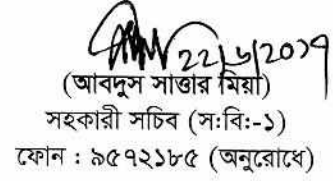 22/6/2017
(আবদুস সাত্তার মিয়া)
সহকারী সচিব (স:বি:-১)
ফোন : ৯৫৭২১৮৫ (অনুরোধে)